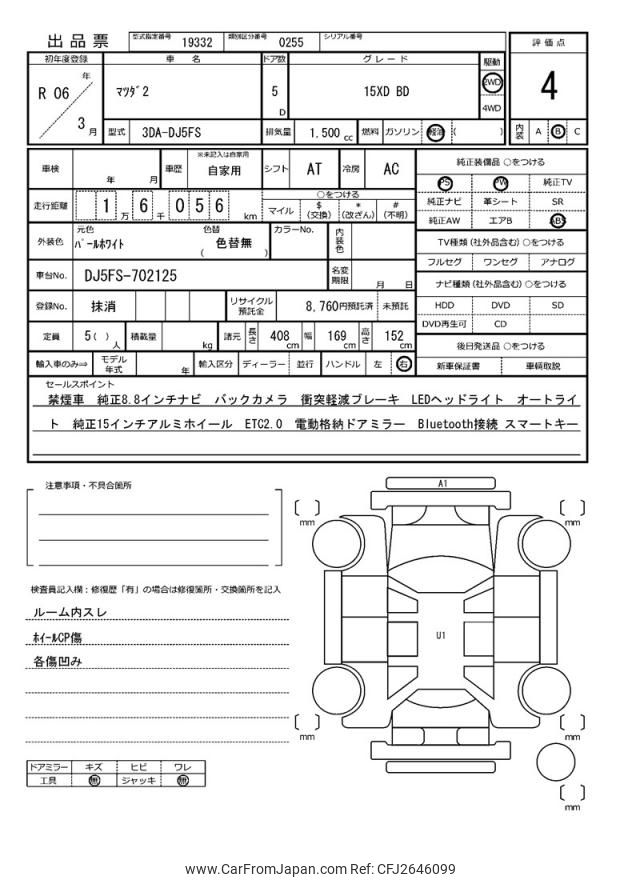 出品票 型式指定番号 19332 類別区分番号 0255 シリアル番号
初年度登録 車名 ドア数 グレード 駆動 評価点
R 06 年 3 月 マツダ2 5 D 15XD BD 2WD 4WD 4
型式 3DA-DJ5FS 排気量 1,500 cc 燃料 ガソリン 軽油 ( ) 内装 A B C
※未記入は自家用
車検 年 月 車歴 自家用 シフト AT 冷房 AC
純正装備品 ○をつける
PS PW 純正TV
純正ナビ 革シート SR
純正AW エアB ABS
走行距離 1 万 6 千 0 5 6 km
○をつける
マイル $(交換) *(改ざん) #(不明)
外装色 元色 パールホワイト 色替 色替無 ( ) カラーNo. 内装色
TV種類 (社外品含む) ○をつける
フルセグ ワンセグ アナログ
車台No. DJ5FS-702125 名変期限 月 日
ナビ種類 (社外品含む) ○をつける
登録No. 抹消 リサイクル預託金 8,760円預託済 未預託
HDD DVD SD
DVD再生可 CD
定員 5 ( ) 人 積載量 kg 諸元 長さ 408 cm 幅 169 cm 高さ 152 cm
後日発送品 ○をつける
新車保証書 車輌取説
輸入車のみ⇒ モデル年式 年 輸入区分 ディーラー 並行 ハンドル 左 右
セールスポイント
禁煙車 純正8.8インチナビ バックカメラ 衝突軽減ブレーキ LEDヘッドライト オートライ
ト 純正15インチアルミホイール ETC2.0 電動格納ドアミラー Bluetooth接続 スマートキー
注意事項・不具合箇所
A1
mm mm
検査員記入欄：修復歴「有」の場合は修復箇所・交換箇所を記入
ルーム内スレ
ホイールCP傷
各傷凹み
U1
mm mm
ドアミラー キズ ヒビ ワレ
工具 無 ジャッキ 無
mm
www.CarFromJapan.com Ref: CFJ2646099